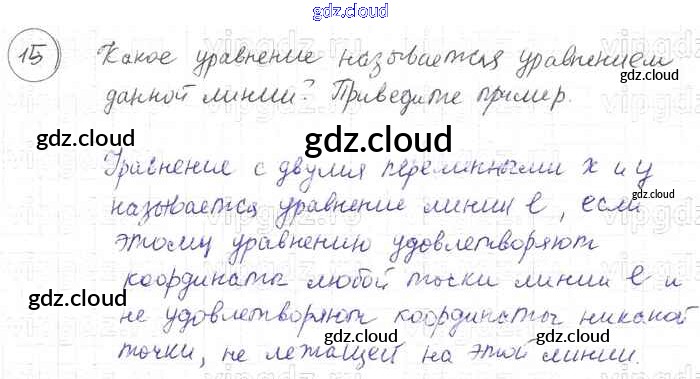 gdz.cloud
15) Какое уравнение называется уравнением
данной линии? Приведите пример.
gdz.cloud
gdz.cloud
gdz.cloud
Уравнение с двумя переменными x и y
называется уравнение линии l, если
gdz.cloud
этому уравнению удовлетворяют
координаты любой точки линии l и
gdz.cloud
gdz.cloud
не удовлетворяют координаты никакой
gdz.cloud
точки, не лежащей на этой линии.
gdz.cloud